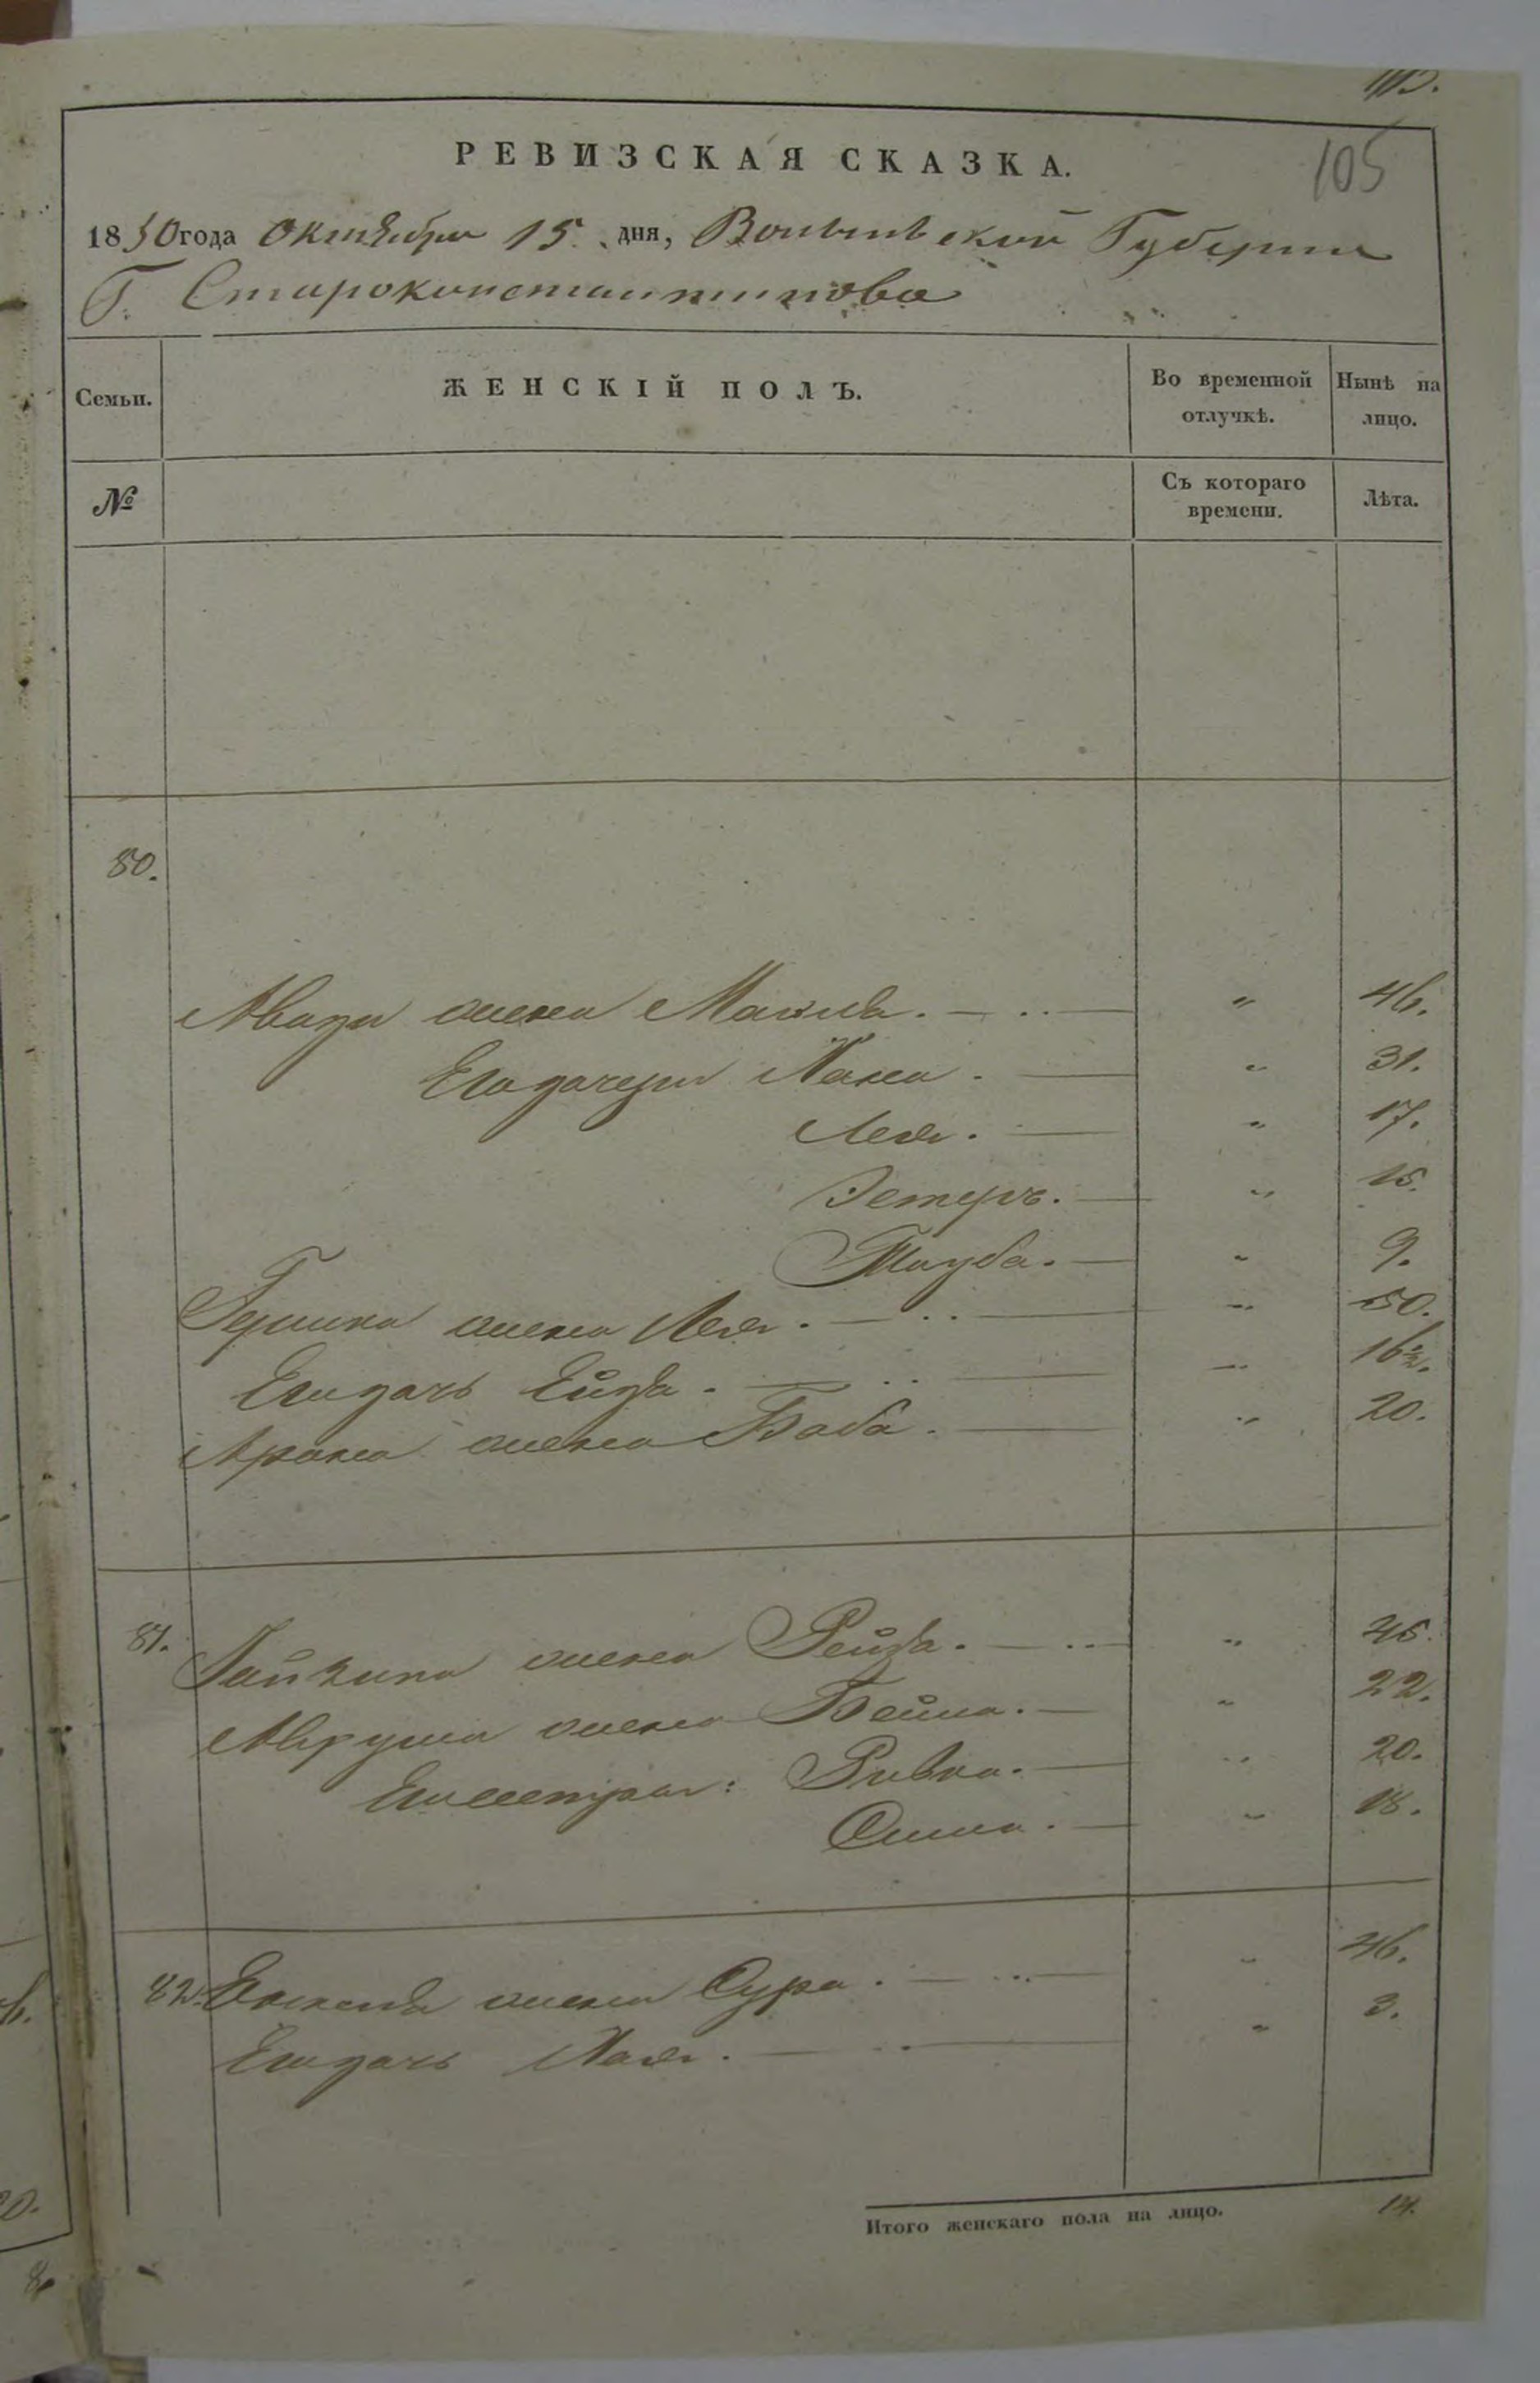 115.
105
РЕВИЗСКАЯ СКАЗКА.
1850 года Октября 15 дня, Волынской Губернии
Г. Староконстантинова
Семьи. ЖЕНСКІЙ ПОЛЪ. Во временной отлучкѣ. Нынѣ на лицо.
№ Съ котораго времени. Лѣта.
80.
жена " 46.
Его дочери Хана. " 31.
Лея. " 17.
Эстеръ. " 15.
Тауба. " 9.
Гершка жена Лея. " 50.
Его дочь Ейдя. " 16½.
Арона жена Баба. " 20.
81. жена Рейзя. " 45.
жена Бейла. " 22.
Его сестры: Ривка. " 20.
" 18.
82. жена Сура. " 46.
Его дочь Хая. " 3.
Итого женскаго пола на лицо. 14.